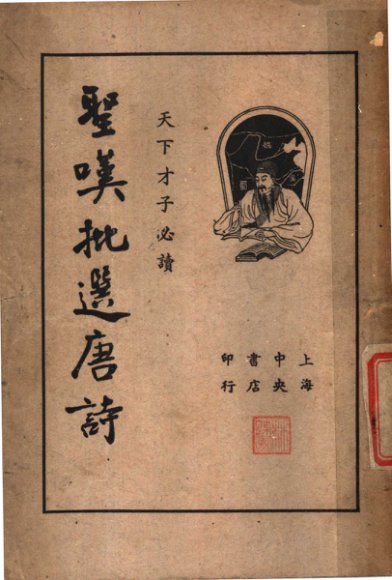 上海
中央
書店
印行
天下才子必讀
聖嘆批選唐詩